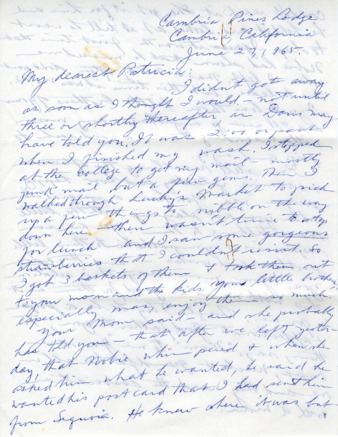 Cambria Pines Lodge
Cambria California
June 27, 1965.
My dearest Patricia:
I didn't get away
as soon as I thought I would - not until
three or shortly thereafter, as Doris may
have told you. It was 2:00 or past
when I finished my wash. I stopped
at the college to get my mail - mostly
junk mail but a few gems. Then I
walked through Lucky's Market to pick
up a few things to nibble on the way
down here - there wasn't time to stop
for lunch - and I saw some gorgeous
strawberries that I couldn't resist. So
I got 3 baskets of them & took them out
to your mom and the kids. Your little brother
especially may enjoy them so much.
Your Mom said - and she probably
has told you - that after we left yester-
day, that Nobie whimpered & when she
asked him what he wanted, he said he
wanted his postcard that I had sent him
from Sequoia. He knew where it was but